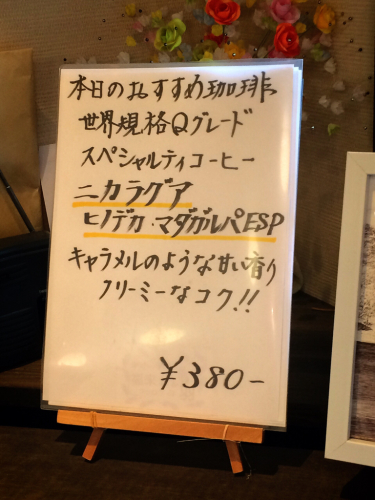 本日のおすすめ珈琲
世界規格Qグレード
スペシャルティコーヒー
ニカラグア
ヒノデカ・マタガルパESP
キャラメルのような甘い香り
クリーミーなコク!!
¥380-